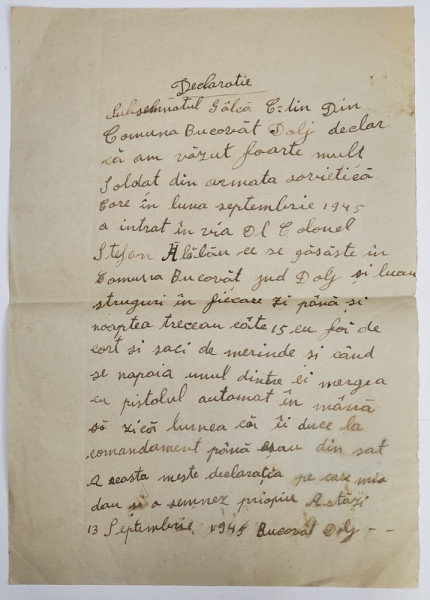 Declaratie
Subsemnatul Gâlcă C-tin Din
Comuna Bucovăt Dolj declar
că am văzut foarte mult
Soldat din armata sovietică
Care în luna septembrie 1945
a intrat în via Dl Colonel
Stefan Hălălău ce se găsăște în
Comuna Bucovăt jud Dolj și luau
struguri în fiecare zi până și
noaptea treceau câte 15 cu foi de
cort si saci de merinde si când
se napoia unul dintre ei mergea
cu pistolul automat în mână
să zică lumea că îi duce la
comandament până esau din sat
Aceasta meste declarația pe care mio
dau și o semnez propiu Astăzi
13 Septembrie 1945 Bucovăt Dolj - -